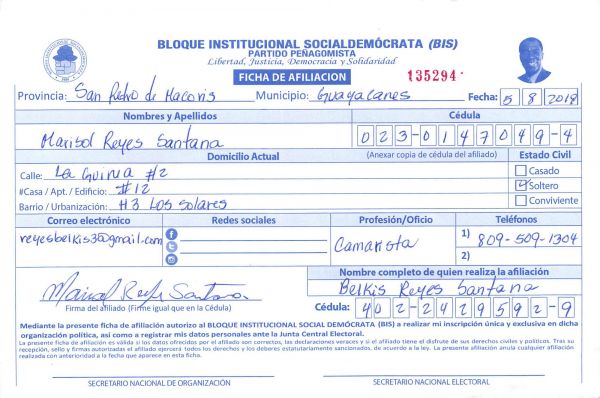 BLOQUE INSTITUCIONAL SOCIALDEMÓCRATA (BIS)
PARTIDO PEÑAGOMISTA
Libertad, Justicia, Democracia y Solidaridad
FICHA DE AFILIACION
135294
Provincia: San Pedro de Macoris Municipio: Guayacanes Fecha: 5 8 2018
Nombres y Apellidos Cédula
Marisol Reyes Santana 023-0147049-4
Domicilio Actual (Anexar copia de cédula del afiliado) Estado Civil
Calle: La Guinia #2 Casado
#Casa / Apt. / Edificio: #12 Soltero
Barrio / Urbanización: H3 Los Solares Conviviente
Correo electrónico Redes sociales Profesión/Oficio Teléfonos
reyesbelkis35@gmail.com Camarista 1) 809-509-1304
2)
Nombre completo de quien realiza la afiliación
Belkis Reyes Santana
Marisol Reyes Santana
Firma del afiliado (Firme igual que en la Cédula) Cédula: 402-2429592-9
Mediante la presente ficha de afiliación autorizo al BLOQUE INSTITUCIONAL SOCIAL DEMÓCRATA (BIS) a realizar mi inscripción única y exclusiva en dicha
organización política, así como a registrar mis datos personales ante la Junta Central Electoral.
La presente ficha de afiliación es válida si los datos ofrecidos por el afiliado son correctos, las declaraciones veraces y si el afiliado tiene el disfrute de sus derechos civiles y políticos. Tras su
recepción, sello y firmas autorizadas el afiliado ejercerá todos los derechos y los deberes estatutariamente sancionados, de acuerdo a la ley. La presente afiliación anula cualquier afiliación
realizada con anterioridad a la fecha que aparece en esta ficha.
SECRETARIO NACIONAL DE ORGANIZACIÓN SECRETARIO NACIONAL ELECTORAL